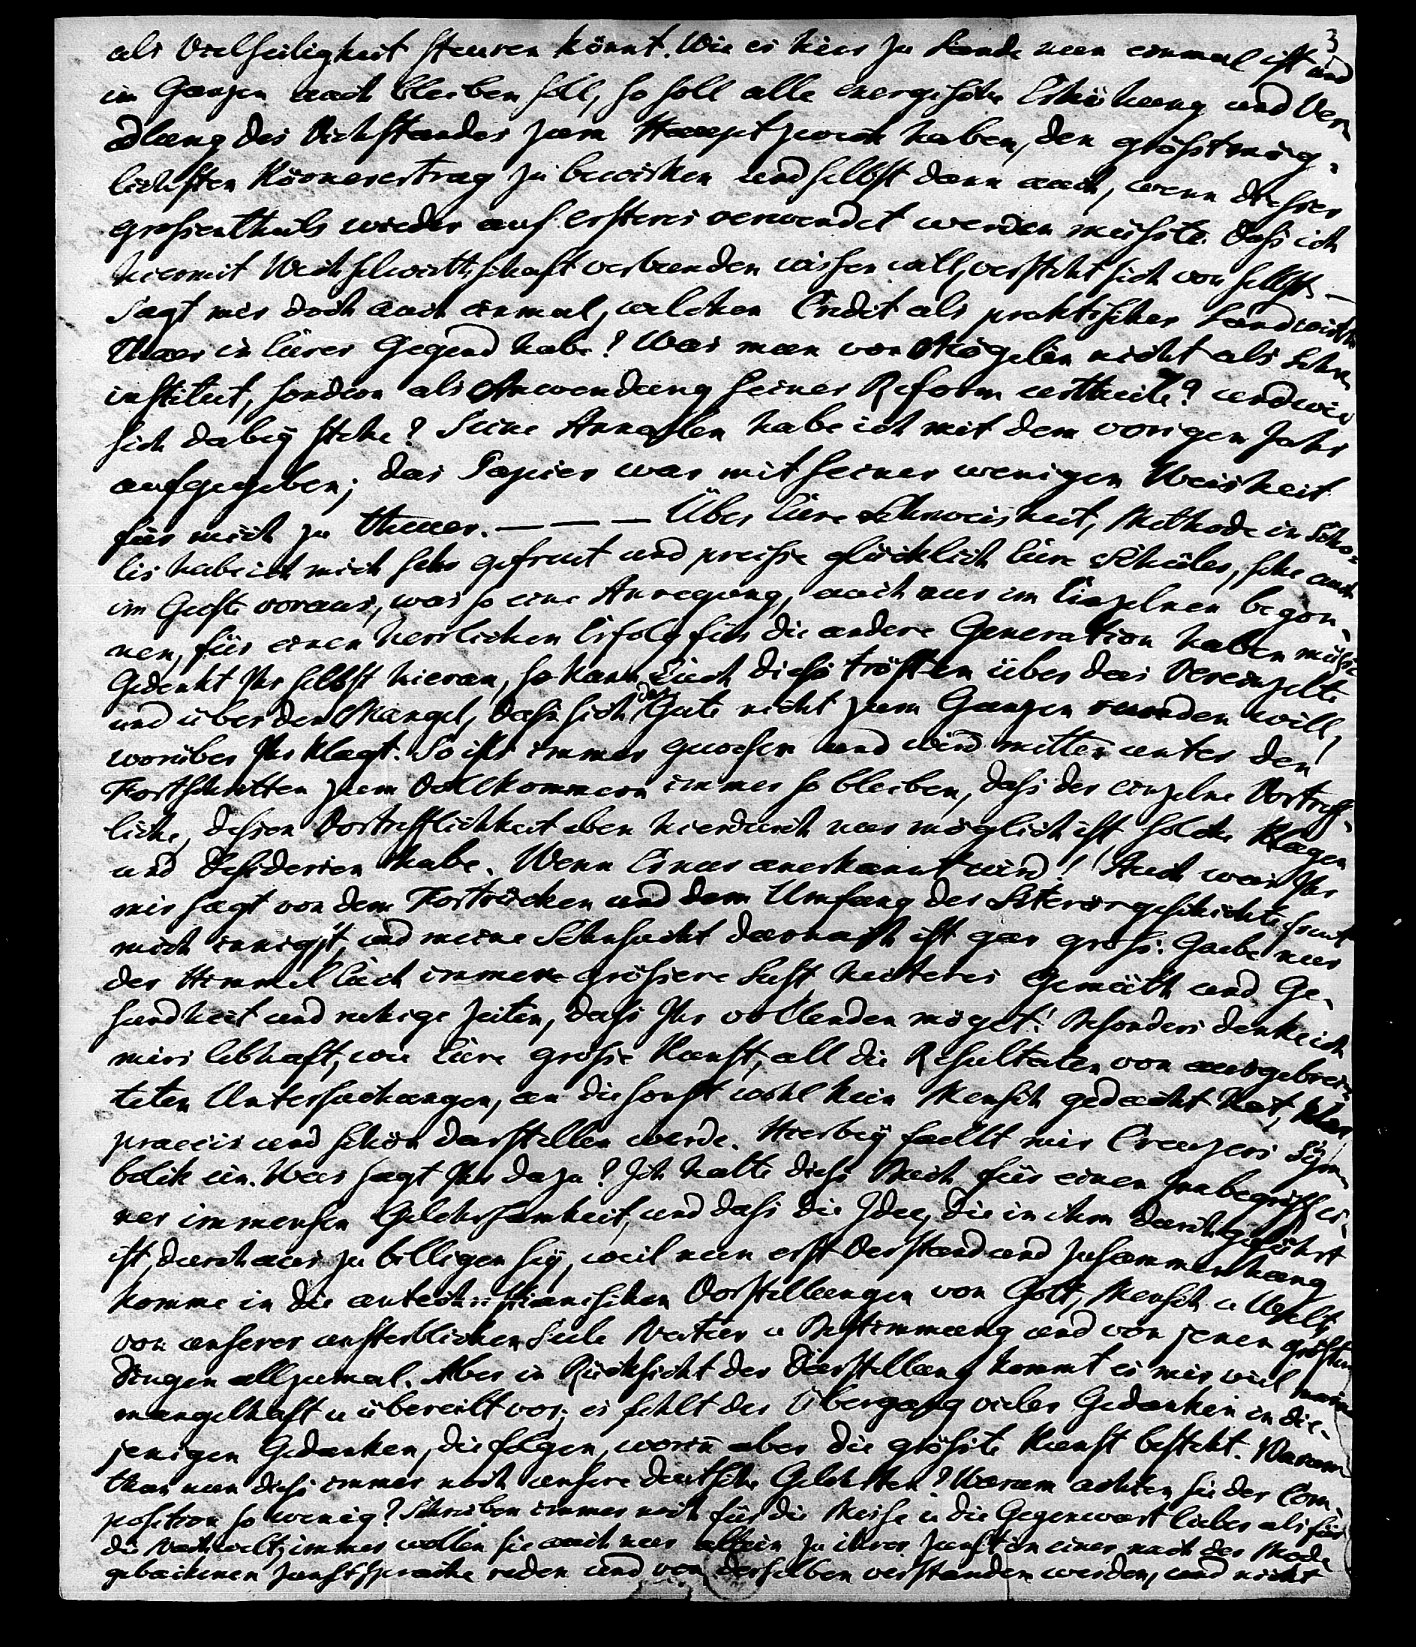 3
als Vielseitigkeit steuren könnt. Wie es hier zu Lande nun einmal ist und
im Ganzen auch bleiben soll, so soll alle energische Erhöhung und Ver-
edlung des Viehstandes zum Hauptzwek haben, den gröfstmög-
lichsten Körnerertrag zu bewirken und selbst dann auch, wenn dieser
grofsentheils wieder auf ersteres verwendet werden müfste. Dafs ich
hiermit Wechselwirthschaft verbunden wissen will, versteht sich von selbst. —
Sagt mir doch auch einmal, welchen Credit als praktischer Landwirth
Thaer in Eurer Gegend habe? Was man von Mögelin nicht als Lehr-
institut, sondern als Anwendung seiner Reform urtheile? und wie
sich dabey stehe? Seine Annalen habe ich mit dem vorigen Jahr
aufgegeben; das Papier war mit seiner wenigen Weisheit
für mich zu theuer. — — — Über Eure Methode in
lis habe ich mich sehr gefreut und preise glücklich Eure Schüler, sehe auch
im Geiste voraus, was so eine Anregung, auch nur im Einzelnen begon-
nen, für einen herrlichen Erfolg für die andere Generation haben müfse
Gedenkt Ihr selbst hieran, so kann Euch diefs trösten über das Vereinzelte
und über den Mangel, dafs sich das Gute nicht zum Ganzen runden will,
worüber Ihr klagt. So ists immer gewesen und wird mitten unter den
Fortschritten zum Vollkommern immer so bleiben, dafs der einzelne Vortreff-
liche, dessen Vortrefflichkeit eben hierdurch nur möglich ist solche Klagen
und Desiderien habe. Wenn Er nur anerkannt wird! Auch was Ihr
mir sagt von dem Fortrücken und dem Umfang der Literärgeschichte freut
mich innigst und meine Sehnsucht darnach ist gar grofs. Gaebe nur
der Himmel Euch immer gröfsere Lust, heiteres Gemüth und Ge-
sundheit und ruhige Zeiten, dafs Ihr vollenden möget! Besonders denke ich
mirs lebhaft, wie Eure grofse Kunst, all die Resultaten von ausgebrei-
teten Untersuchungen, an die sonst wohl kein Mensch gedacht hat, klar,
praecis und schön darstellen werde. Hierbey faellt mir Creuzers Sym-
bolik ein. Was sagt Ihr dazu? Ich halte diefs Buch für einen Innbegriff ei-
ner immensen Gelehrsamkeit, und dafs die Idee, die in ihm durchgeführt
ist, durchaus zu billigen sey, weil nun erst Verstand und Zusammenhang
komme in die antechristianischen Vorstellungen von Gott, Mensch u Welt,
von unserer unsterblichen Seele Natur u Bestimmung und von jenen gröfsten
Dingen allzumal. Aber in Rücksicht der Darstellung kommt es mir viel
mangelhaft u übereilt vor; es fehlt der Übergang vieler Gedanken in die-
jenigen Gedanken, die folgen, worin aber die gröfste Kunst besteht. Warum
thun nun diefs immer noch unsere deutsche Gelehrten? Warum achten sie der Com-
position so wenig? Schreiben immer noch für die Messe u die Gegenwart lieber als für
die Nachwelt; immer wollen sie auch nur allein zu ihrer Zunft in einer nach der Mode
gebackenen Zunftsprache reden und von derselben verstanden werden, und nicht